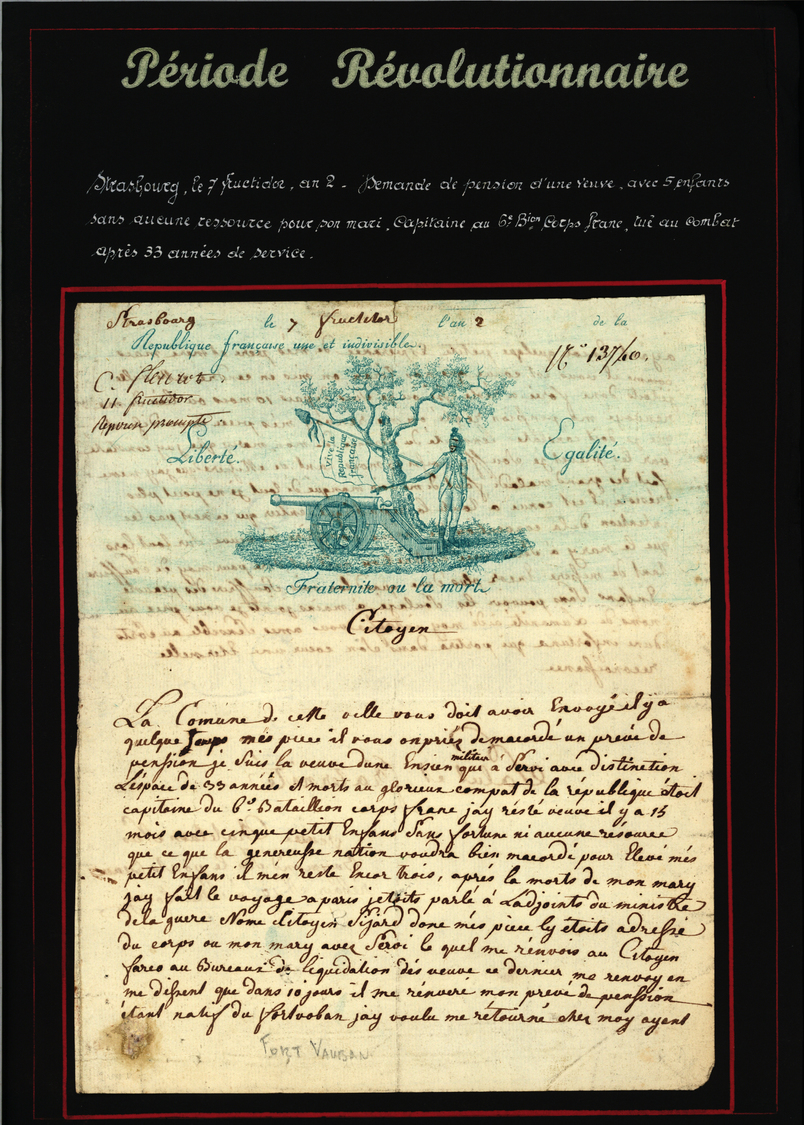 Période Révolutionnaire
Strasbourg, le 7 fructidor, an 2 - Demande de pension d'une veuve, avec 5 enfants
sans aucune ressource pour son mari, Capitaine au 6e Bion Corps franc, tué au combat
après 33 années de service.
Strasbourg le 7 fructidor l'an 2 de la
Republique française une et indivisible.
No 13740.
C.
11 fructidor
Liberté. Egalité.
Vive la
Republique
française
Fraternite ou la mort
Citoyen
La Comune de cette ville vous doit avoir Envoyé il y a
quelque temps més piece il vous onpriéz demacordé un prevé de
pension je suis la veuve dune Ensien militair qui à Servi avec distinction
L'éspace de 33 années et morts au glorieux compat de la république étoit
capitaine du 6e Bataillion corps franc jay résté veuve il y a 15
mois avec cinque petit Enfans Sans fortune ni aucune résource
que ce que la genereusse nation voudra bien macordé pour Elevé més
petit Enfans il men reste Encor trois, après la morts de mon mary
jay fait le voyage a paris jetoits parlé à Ladjoints du ministre
dela guere Nomé Citoyen Sijard doné més piece ly étoits adressé
du corps ou mon mary avez Servi le quel me rénvois au Citoyen
fareo au Bureaux de liquidation dés veuve ce dernier me renvoy en
me disent que dans 10 jours il me rénvere mon prevé de penssion
étant natif du fortvoban jay voulu me rétourne chez moy ayent
FORT VAUBAN